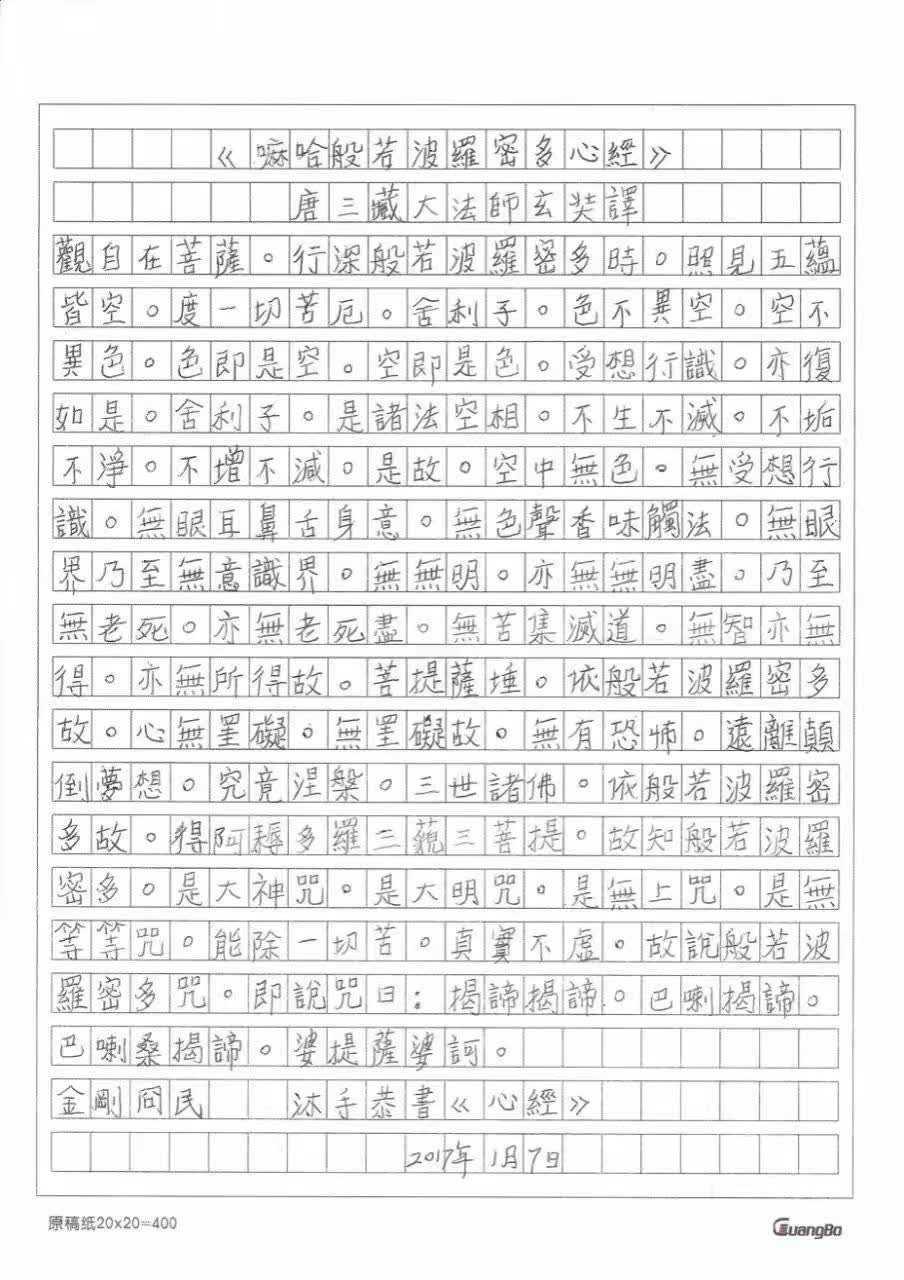 《嘛哈般若波羅密多心經》
唐三藏大法師玄奘譯
觀自在菩薩。行深般若波羅密多時。照見五蘊
皆空。度一切苦厄。舍利子。色不異空。空不
異色。色即是空。空即是色。受想行識。亦復
如是。舍利子。是諸法空相。不生不滅。不垢
不淨。不增不減。是故。空中無色。無受想行
識。無眼耳鼻舌身意。無色聲香味觸法。無眼
界乃至無意識界。無無明。亦無無明盡。乃至
無老死。亦無老死盡。無苦集滅道。無智亦無
得。亦無所得故。菩提薩埵。依般若波羅密多
故。心無罣礙。無罣礙故。無有恐怖。遠離顛
倒夢想。究竟涅槃。三世諸佛。依般若波羅密
多故。得阿耨多羅三藐三菩提。故知般若波羅
密多。是大神咒。是大明咒。是無上咒。是無
等等咒。能除一切苦。真實不虛。故說般若波
羅密多咒。即說咒曰：揭諦揭諦。巴喇揭諦。
巴喇桑揭諦。婆提薩婆訶。
金剛冏民 沐手恭書《心經》
2017年1月7日
原稿纸20×20=400 GuangBo